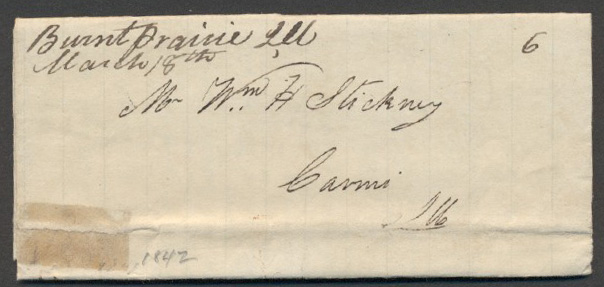 Burnt Prairie Ill
March 18th
6
Mr Wm H Stickney
Carmi
Ill
1842